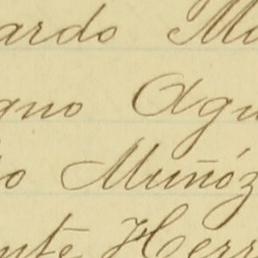 ardo M
gno Agu
o Muñóz
nte Herr